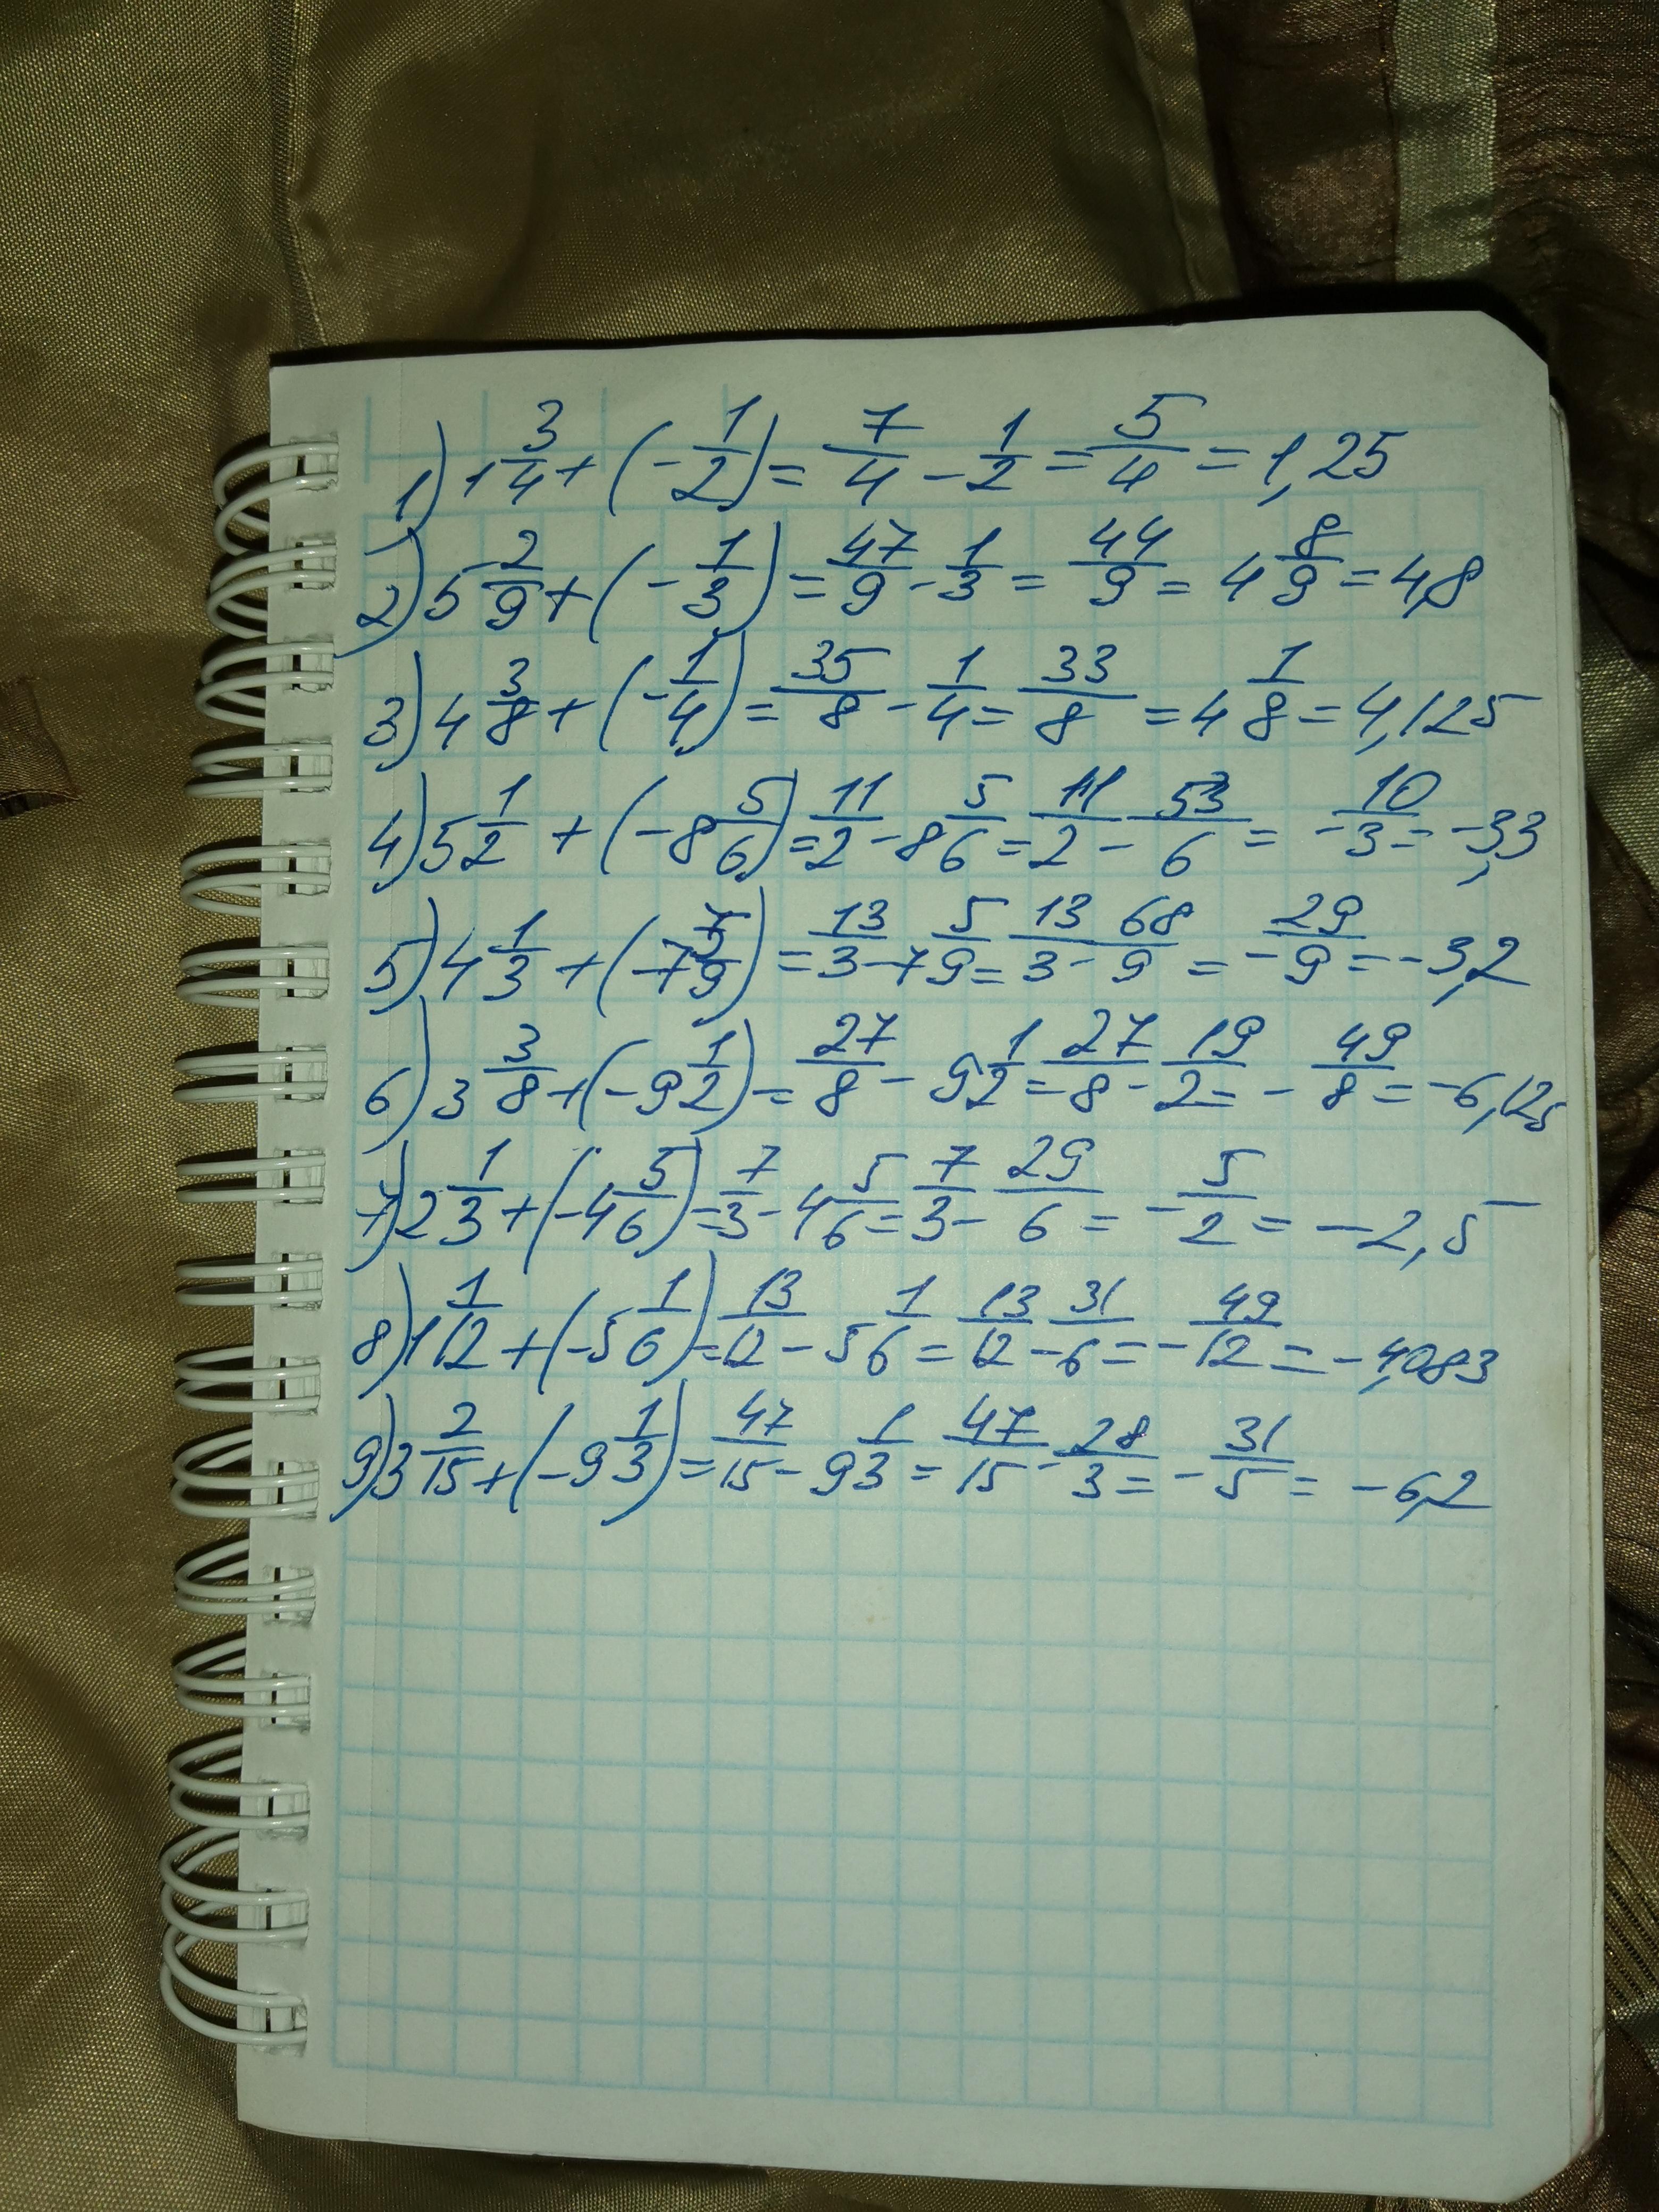 1) 1 3/4 + (- 1/2) = 7/4 - 1/2 = 5/4 = 1,25
2) 5 2/9 + (- 1/3) = 47/9 - 1/3 = 44/9 = 4 8/9 = 4,8
3) 4 3/8 + (- 1/4) = 35/8 - 1/4 = 33/8 = 4 1/8 = 4,125
4) 5 1/2 + (-8 5/6) = 11/2 - 8 5/6 = 11/2 - 53/6 = - 10/3 = -3,3
5) 4 1/3 + (-7 5/9) = 13/3 - 7 5/9 = 13/3 - 68/9 = - 29/9 = -3,2
6) 3 3/8 + (-9 1/2) = 27/8 - 9 1/2 = 27/8 - 19/2 = - 49/8 = -6,125
7) 2 1/3 + (-4 5/6) = 7/3 - 4 5/6 = 7/3 - 29/6 = - 5/2 = -2,5
8) 1 1/12 + (-5 1/6) = 13/12 - 5 1/6 = 13/12 - 31/6 = - 49/12 = -4,083
9) 3 2/15 + (-9 1/3) = 47/15 - 9 1/3 = 47/15 - 28/3 = - 31/5 = -6,2